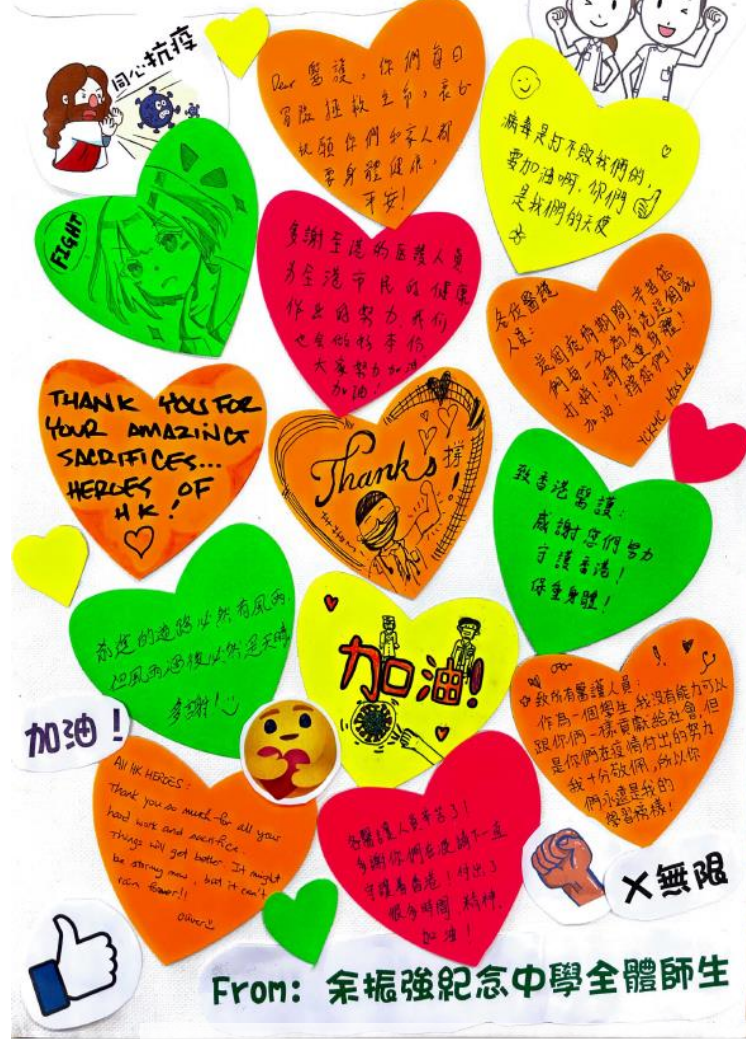 同心抗疫
Dear 醫護，你們每日
冒險拯救生命，衷心
祝願你們和家人都
要身體健康，
平安！
病毒是打不敗我們的，
要加油啊，你們
是我們的天使
FIGHT
多謝全港的醫護人員
為全港市民的健康
作出的努力，我们
也會做好本份
大家努力加油
加油！
各位醫護
人員：
這個疫情期間，辛苦您
們每一位為香港這個家
打拼！請保重身體！
加油！撐您們！
YCKMC Miss Lee
THANK YOU FOR
YOUR AMAZING
SACRIFICES...
HEROES OF
HK!
Thanks 撐!
致香港醫護：
感謝您們努力
守護香港！
保重身體！
前進的道路必然有風雨，
但風雨過後必然是天晴
多謝！
加油！
加油！
致所有醫護人員：
作為一個學生，我沒有能力可以
跟你們一樣貢獻給社會，但
是你們在疫情付出的努力
我十分敬佩，所以你
們永遠是我的
學習榜樣！
All HK HEROES:
Thank you so much for all your
hard work and sacrifice.
Things will get better. It might
be stormy now, but it can't
rain forever!!
Oliver
各醫護人員辛苦了！
多謝你們在疫情下一直
守護著香港！付出了
很多時間、精神，
加油！
X無限
From: 余振強紀念中學全體師生